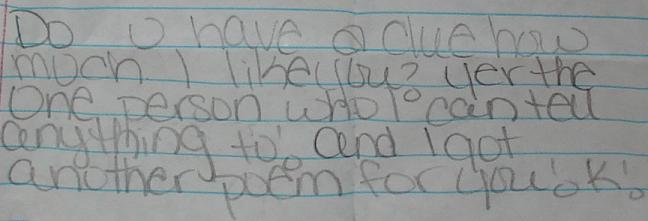 Do U have a clue how
much I like you? yer the
one person who I can tell
anything to. and I got
another poem for you. ok.